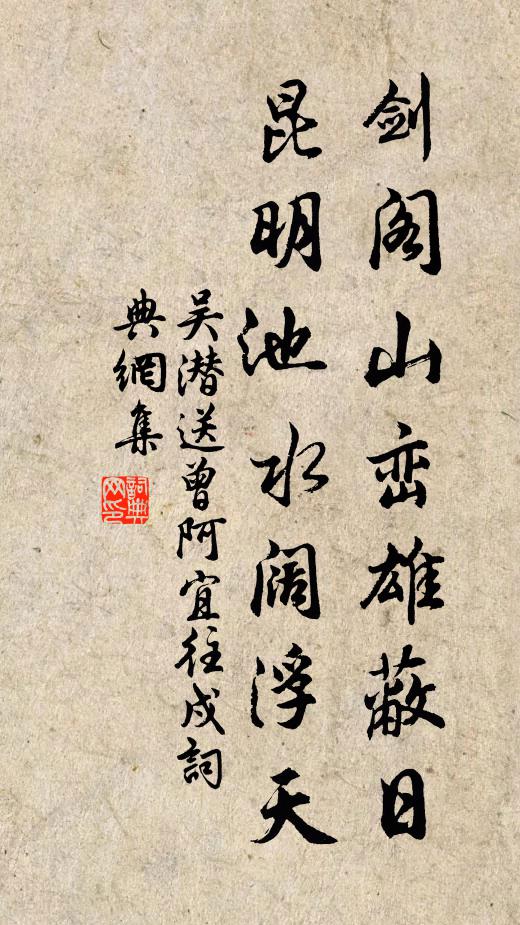 剑阁山峦雄蔽日
昆明池水阔浮天
吴潜送曾阿宜往戍詞
典網集
詞典
网印